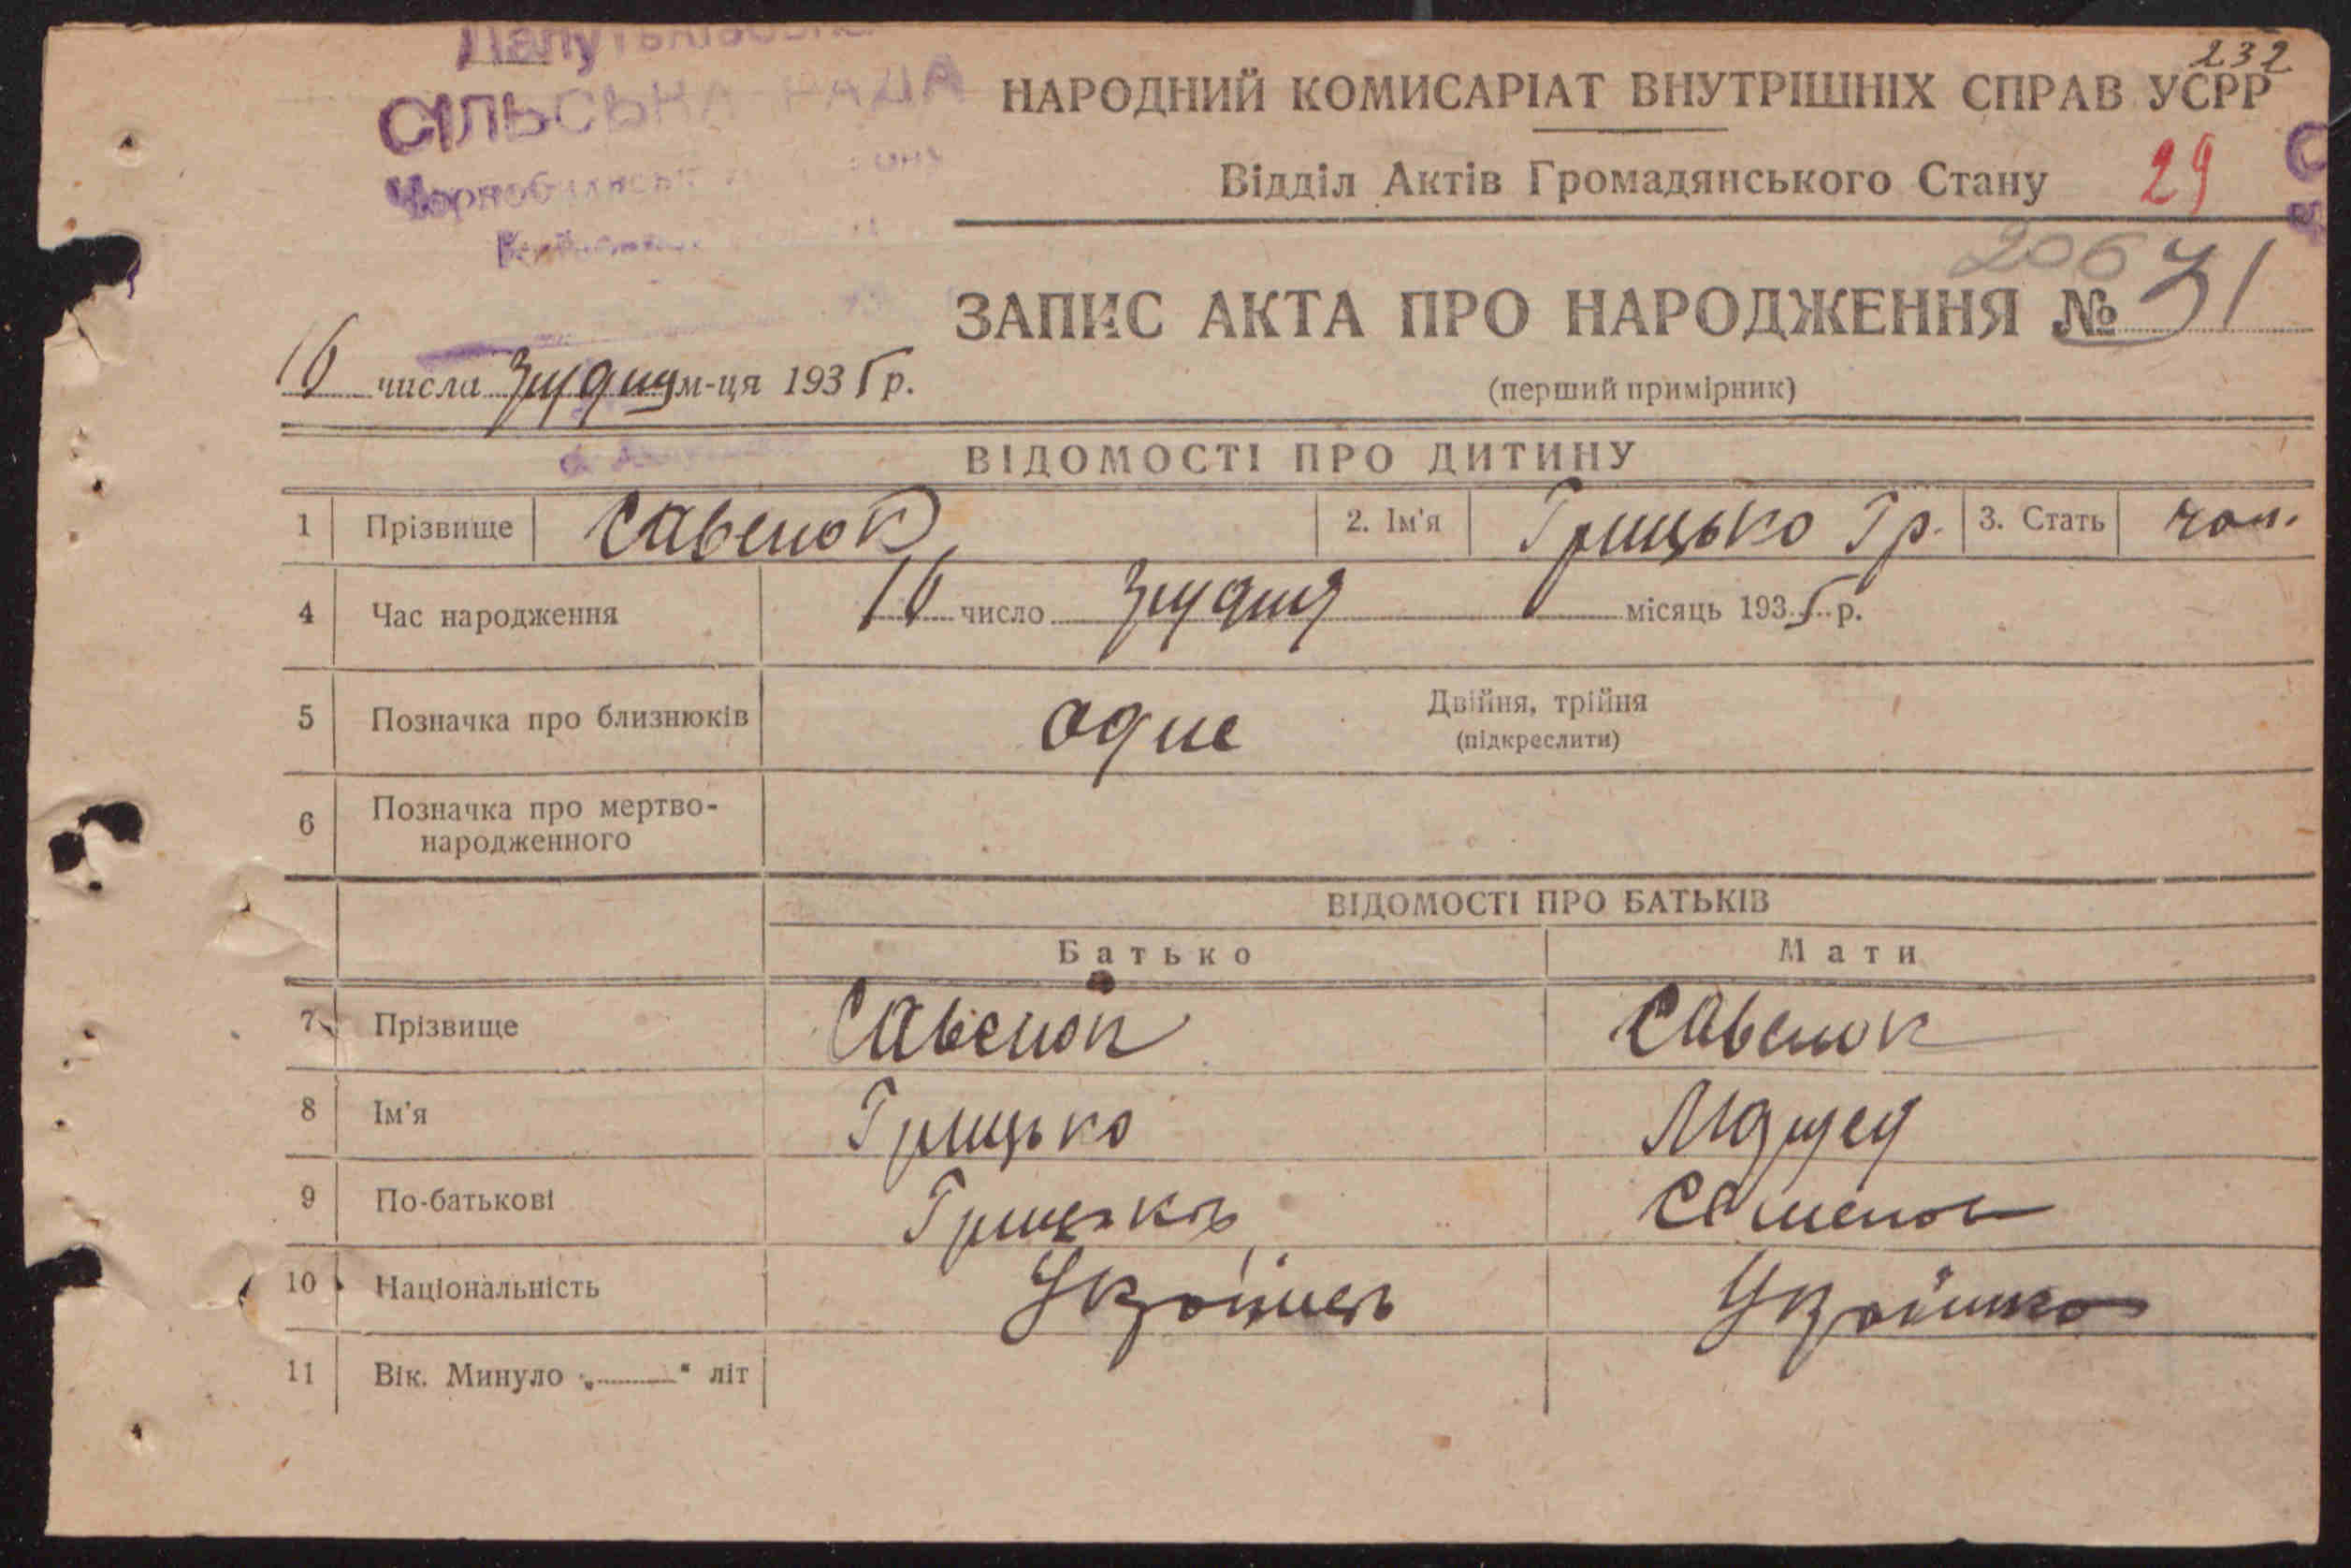 232
СІЛЬСЬКА РАДА
НАРОДНИЙ КОМИСАРІАТ ВНУТРІШНІХ СПРАВ УСРР
Відділ Актів Громадянського Стану 29
206
ЗАПИС АКТА ПРО НАРОДЖЕННЯ № 31
16 числа грудня м-ця 1935 р.
(перший примірник)
ВІДОМОСТІ ПРО ДИТИНУ
1 Прізвище Савенок 2. Ім'я Грицько Гр. 3. Стать чол.
4 Час народження 16 число грудня місяць 1935 р.
5 Позначка про близнюків одне Двійня, трійня
(підкреслити)
6 Позначка про мертво-
народженного
ВІДОМОСТІ ПРО БАТЬКІВ
Батько Мати
7 Прізвище Савенок Савенок
8 Ім'я Грицько
9 По-батькові Грицьків Семенов
10 Національність Українець Українка
11 Вік. Минуло „ “ літ